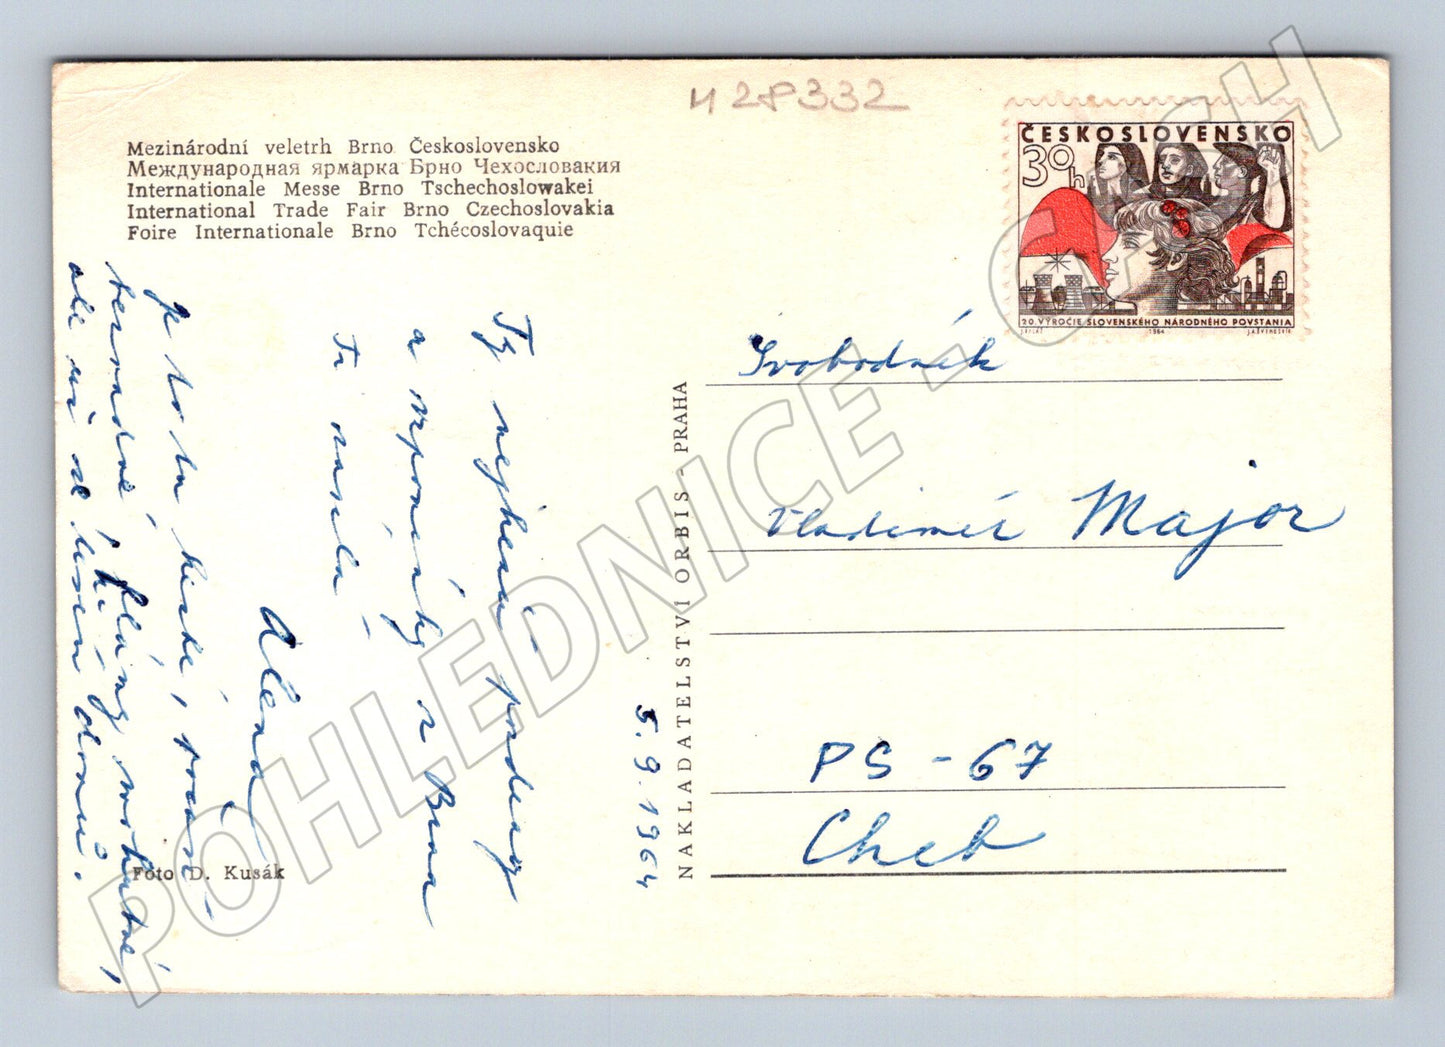 и 28332
Mezinárodní veletrh Brno Československo
Международная ярмарка Брно Чехословакия
Internationale Messe Brno Tschechoslowakei
International Trade Fair Brno Czechoslovakia
Foire Internationale Brno Tchécoslovaquie
Ty nejhezčí pozdravy
a vzpomínky z Brna
Ti zasílá
Alena
Je to tu hezké,
ale už se těším domů.
5.9.1964
Foto D. Kusák
NAKLADATELSTVÍ ORBIS - PRAHA
ČESKOSLOVENSKO
30h
20. VÝROČIE SLOVENSKÉHO NÁRODNÉHO POVSTANIA
1964
Svobodník
Vladimír Major
PS - 67
Cheb
POHLEDNICE - CASH